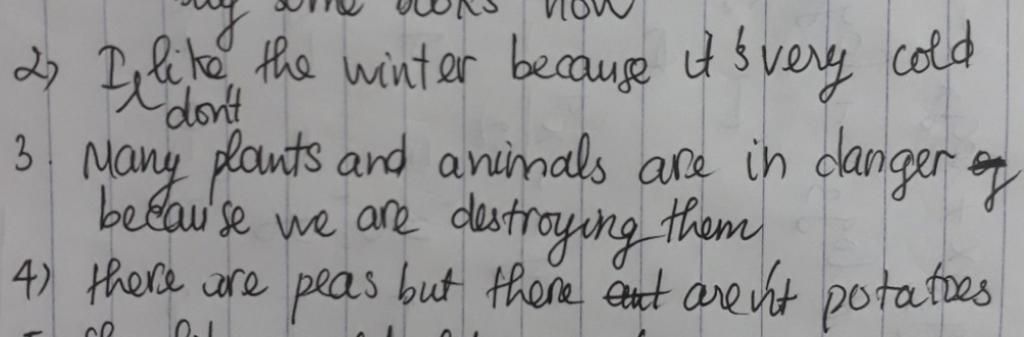 some books now
2) I don't like the winter because it's very cold
3. Many plants and animals are in danger
because we are destroying them
4) there are peas but there aren't potatoes